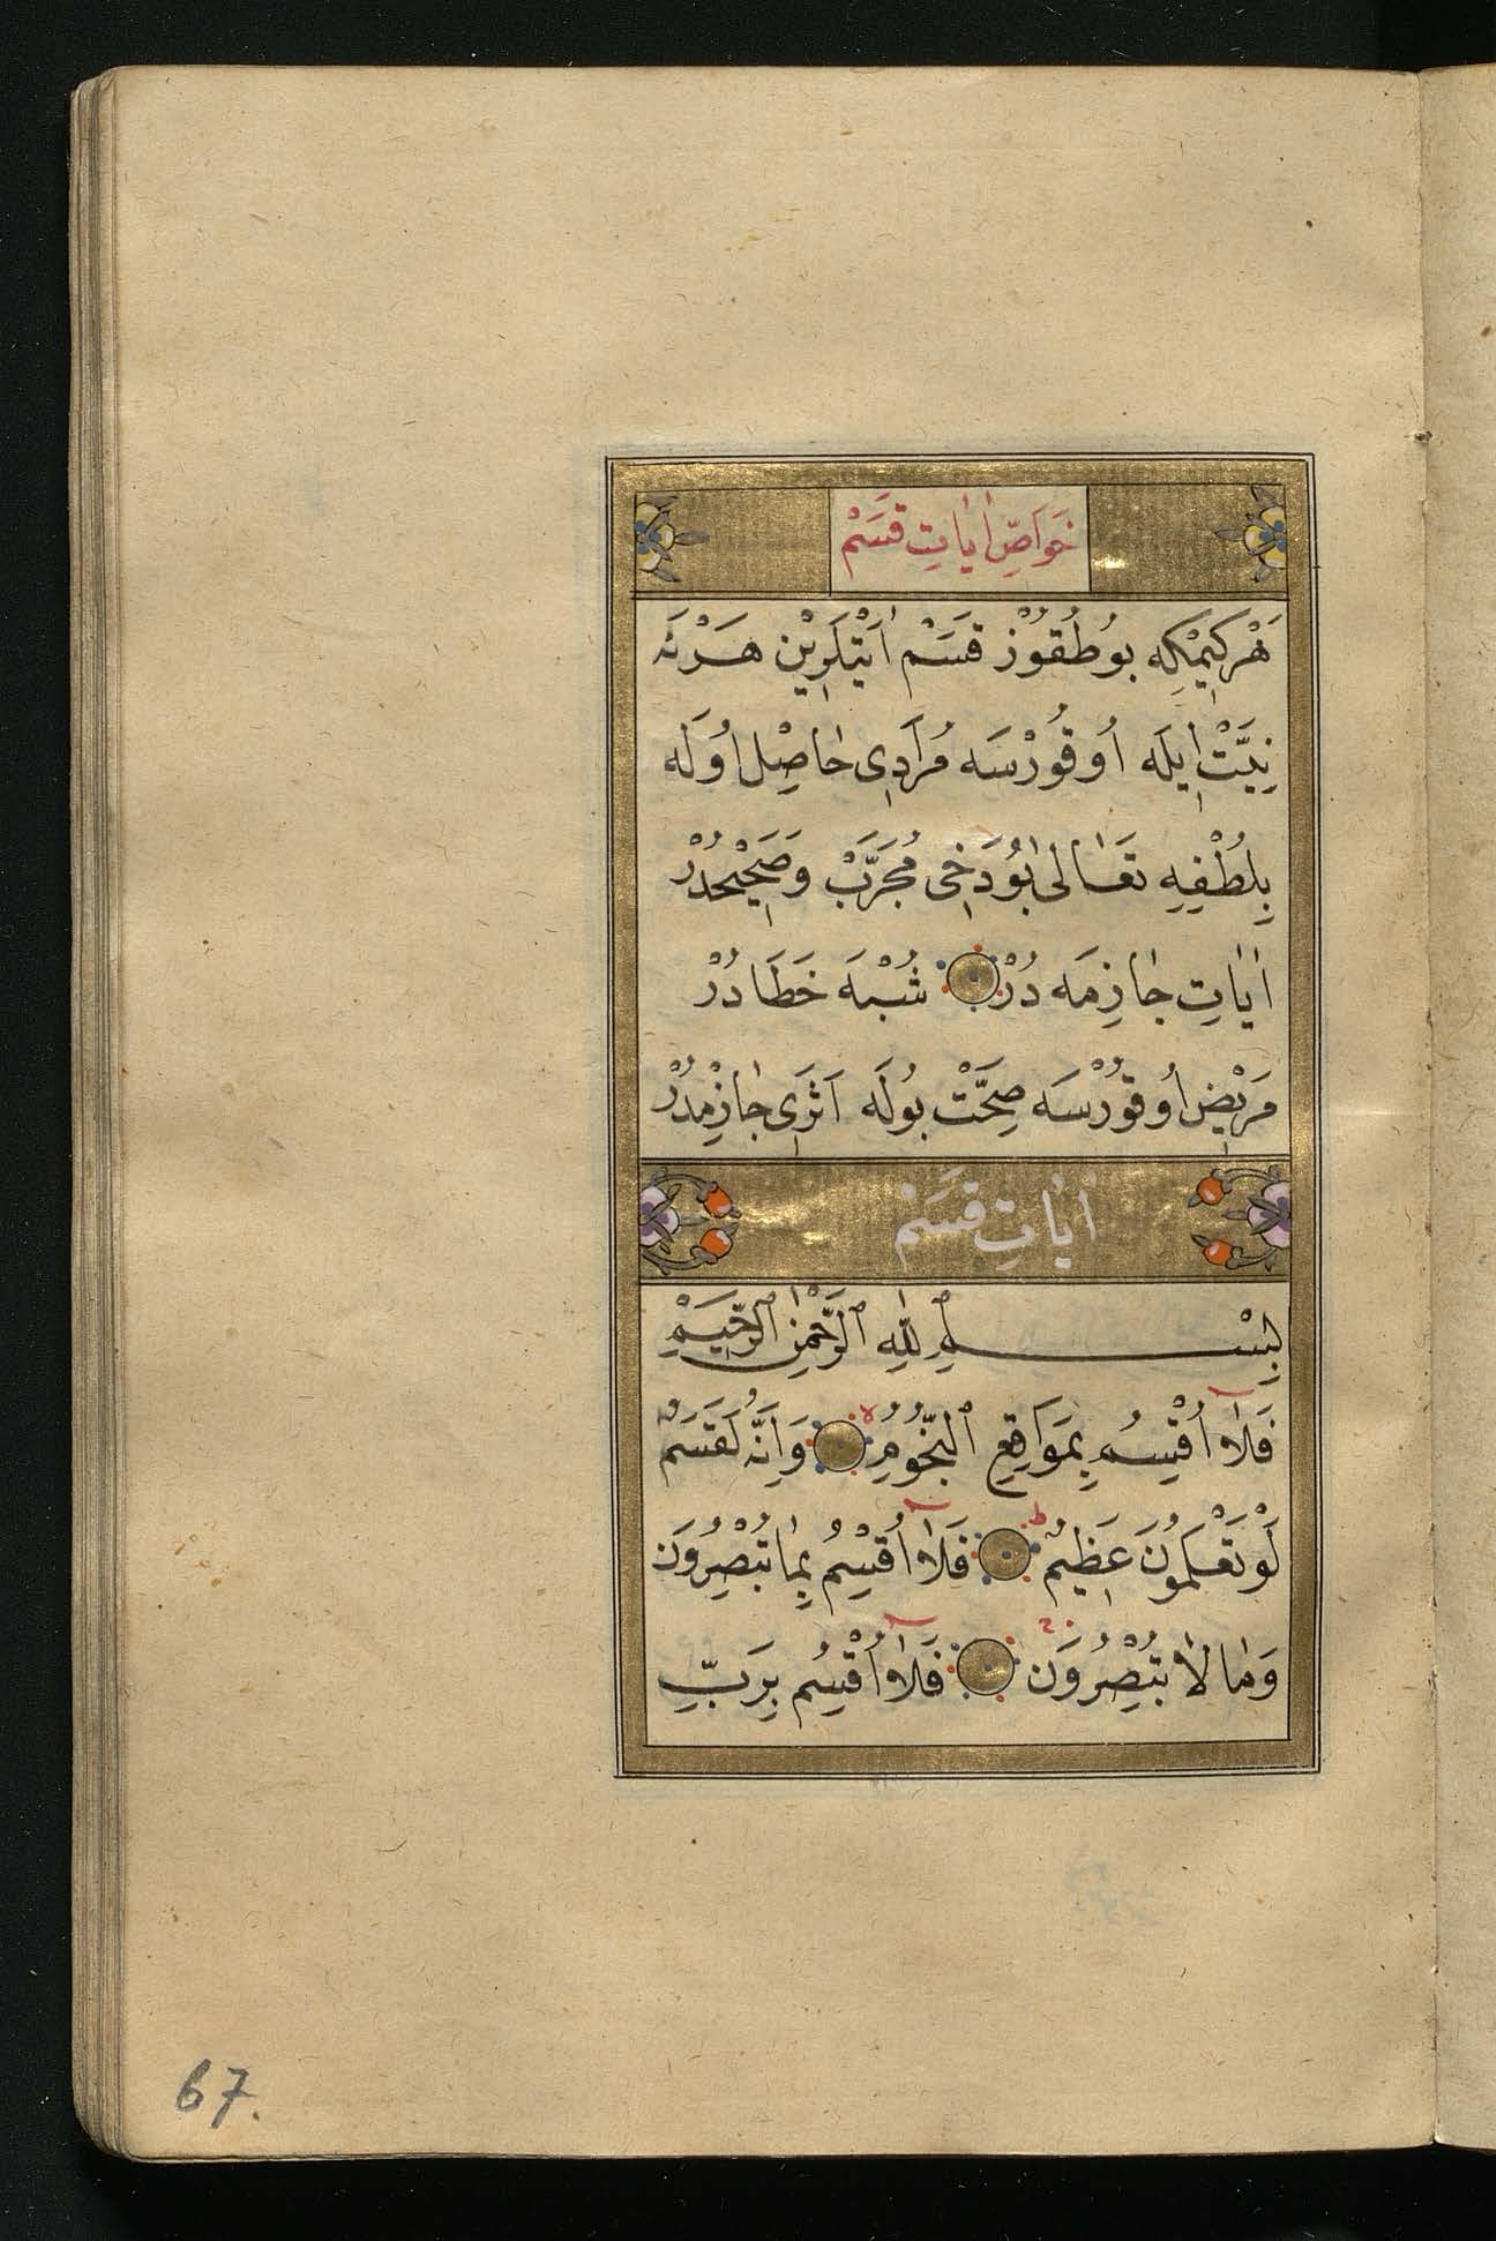 خَوَاصِّ اٰيَاتِ قَسَمْ
هَرْكِيمْكِه بُوطُقُوزْ قَسَمْ اٰيَتْلَرِيْن هَرْنَه
نِيَّتْ اِيلَه اُوقُورْسَه مُرَادِى حَاصِلْ اُولَه
بِلُطْفِهِ تَعَالٰى بُودَخِى مُجَرَّبْ وَصَحِيْحدُرْ
اٰيَاتِ جَازِمَه دُرْ شُبْهَه خَطَادُرْ
مَرِيْض اُوقُورْسَه صِحَّتْ بُولَه اَثَرِى جَازِمدُرْ
اٰيَاتِ قَسَمْ
بِسْمِ اللّٰهِ الرَّحْمٰنِ الرَّحِيْمِ
فَلَآ اُقْسِمُ بِمَوَاقِعِ النُّجُومِ ۙ وَاِنَّهُ لَقَسَمٌ
لَوْ تَعْلَمُونَ عَظِيمٌ ۙ فَلَآ اُقْسِمُ بِمَا تُبْصِرُونَ
وَمَا لَا تُبْصِرُونَ فَلَآ اُقْسِمُ بِرَبِّ
67.